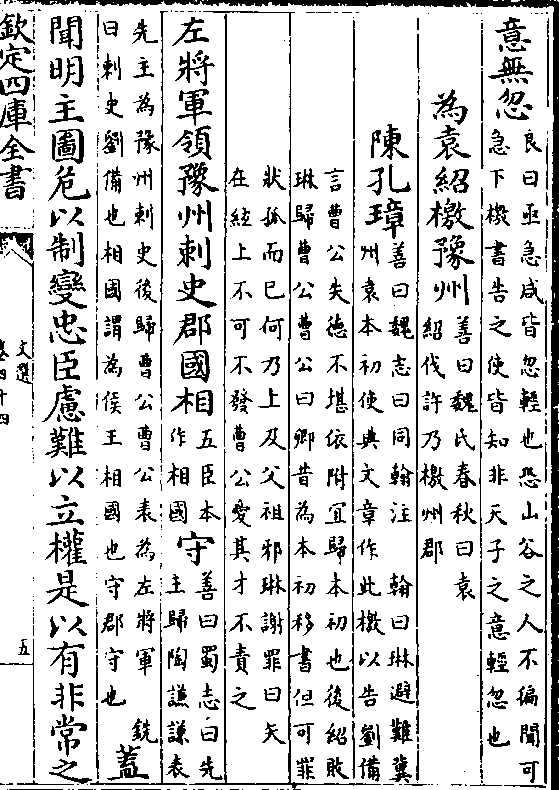 意無忽良曰亟急咸皆忽輕也恐山谷之人不徧聞可
急下檄書告之使皆知非天子之意輕忽也
為袁紹檄豫州善曰魏氏春秋曰袁
紹伐許乃檄州郡
陳孔璋善曰魏志曰同翰注 翰曰琳避難冀
州袁本初使典文章作此檄以告劉備
言曹公失徳不堪依附宜歸本初也後紹敗
琳歸曹公曹公曰卿昔為本初移書但可罪
狀孤而已何乃上及父祖邪琳謝罪曰矢
在絃上不可不發曹公愛其才不責之
左將軍領豫州刺史郡國相五臣本
作相國守善曰蜀志曰先
主歸陶謙謙表
先主為豫州刺史後歸曹公曹公表為左將軍 銑
曰刺史劉備也相國謂為侯王相國也守郡守也蓋
聞明主圖危以制變忠臣慮難以立權是以有非常之
欽定四庫全書
文選
卷四十四
五